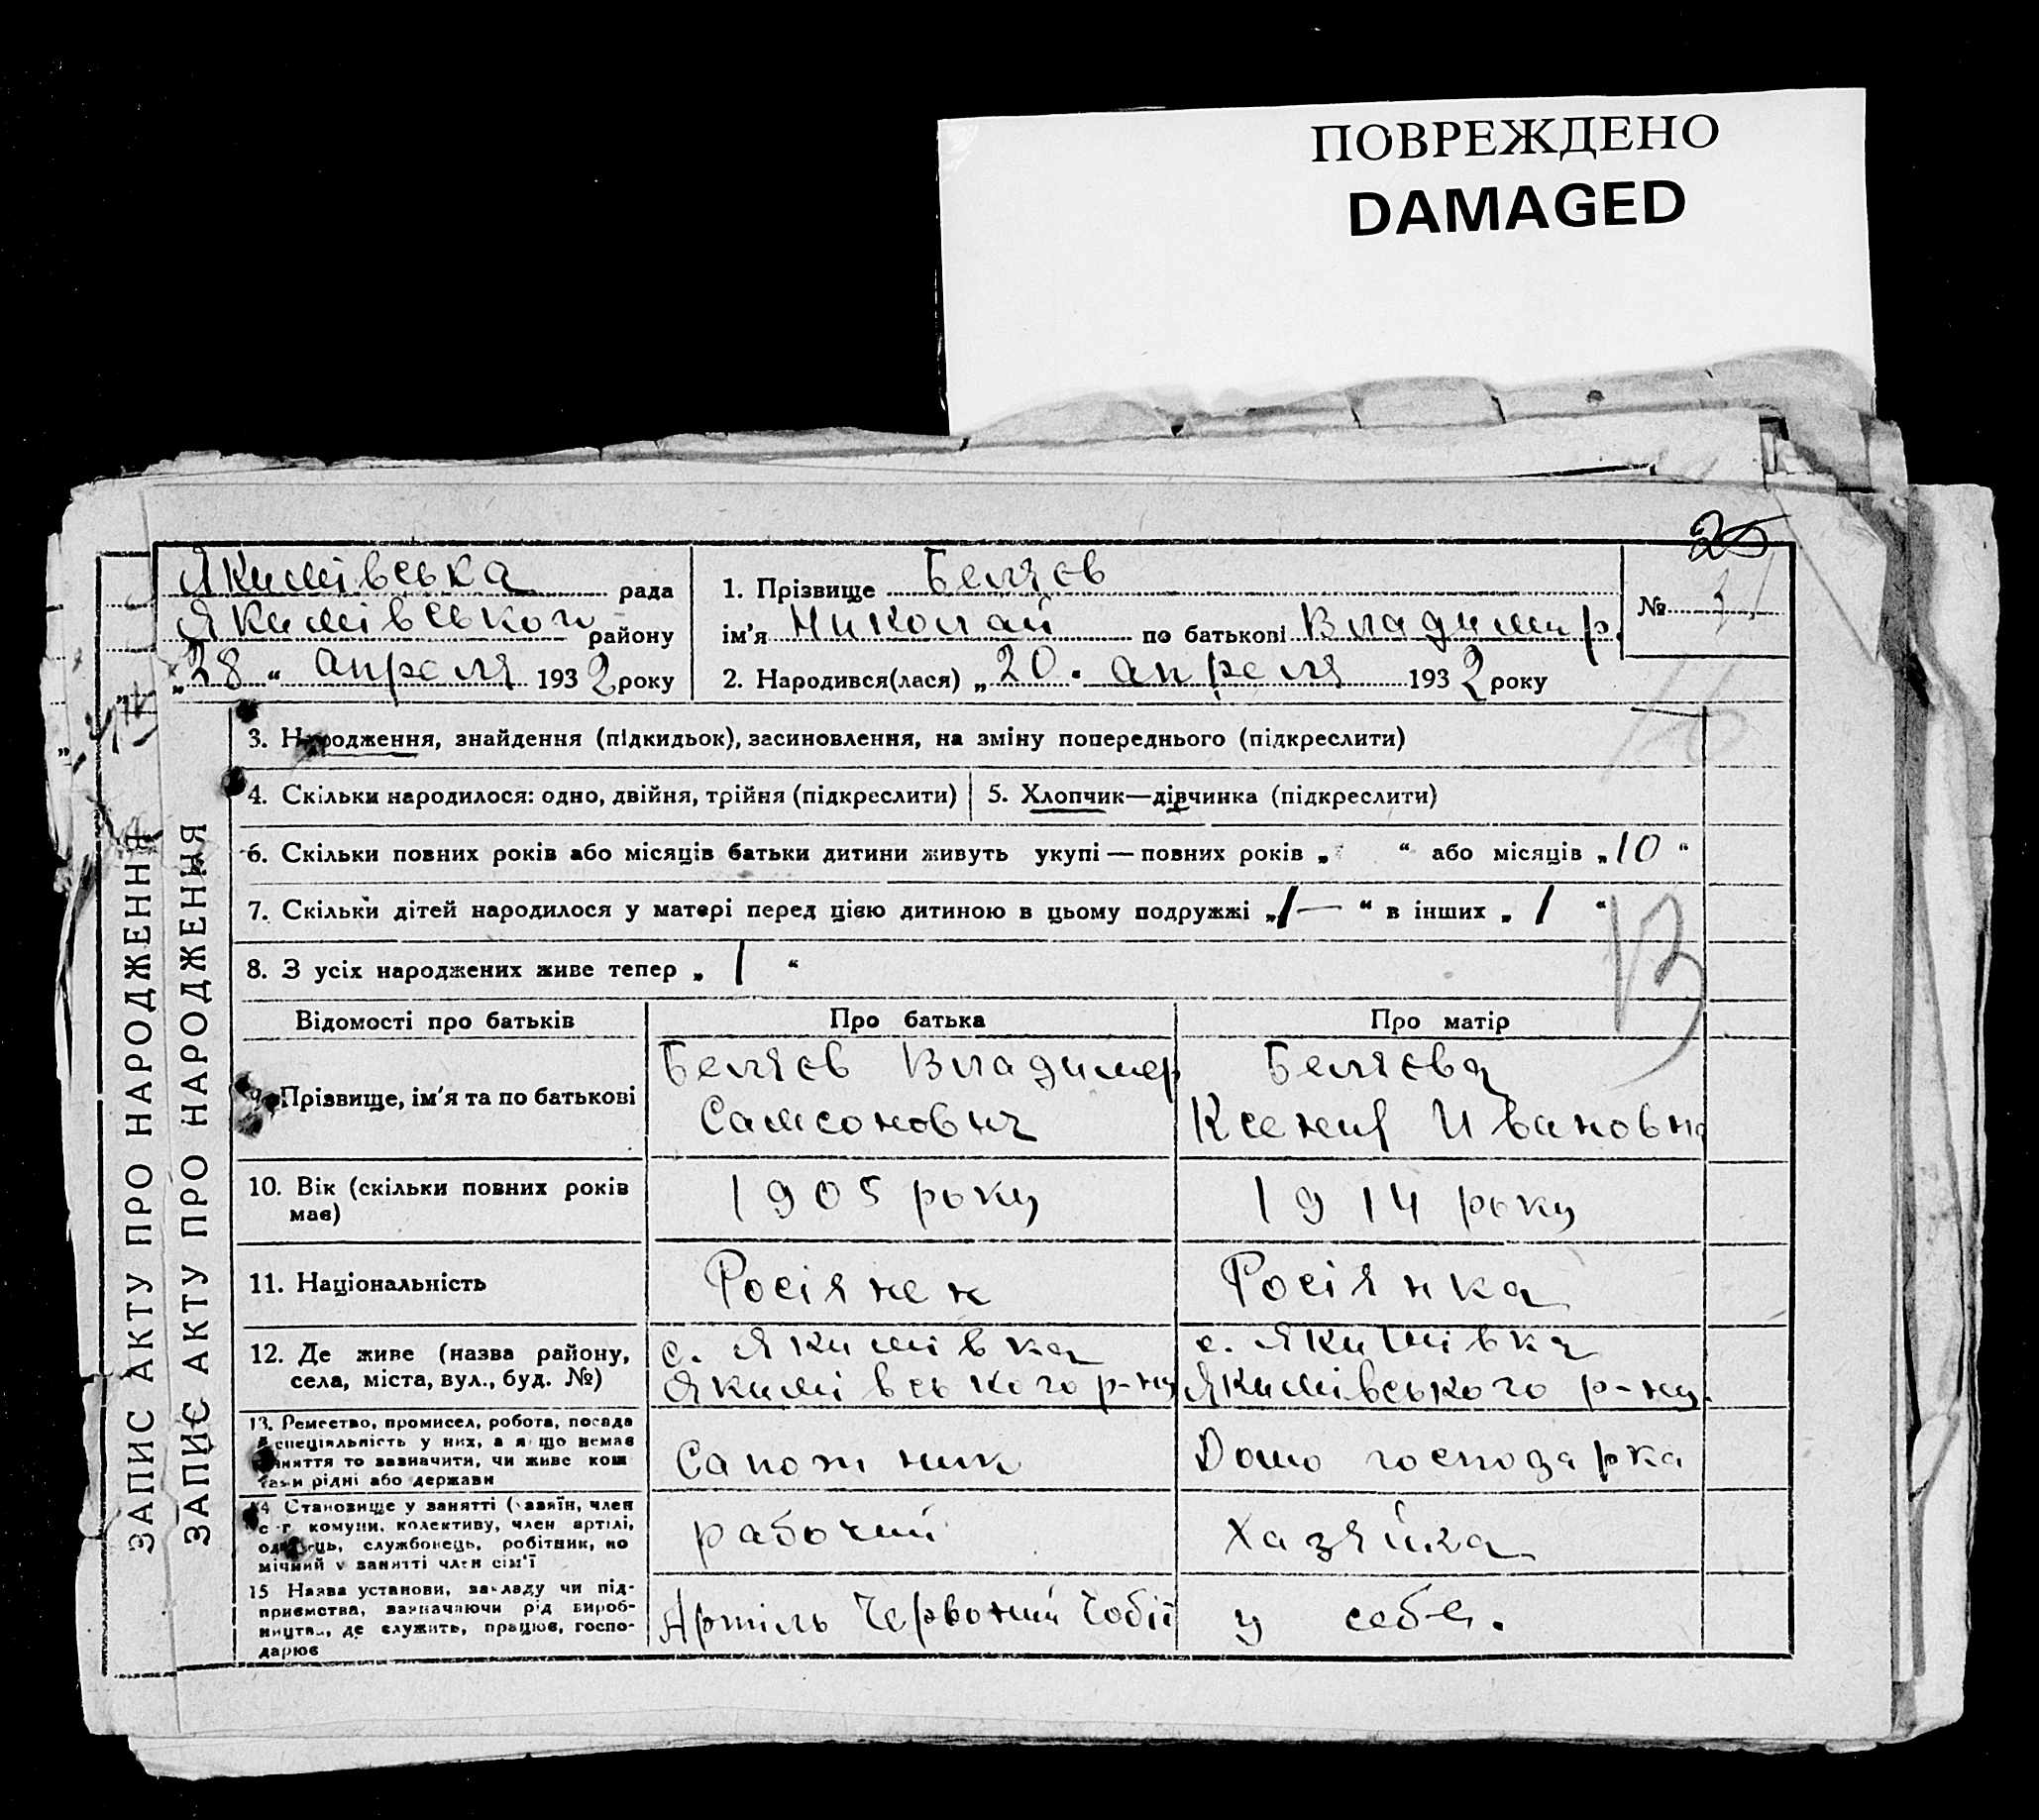 ПОВРЕЖДЕНО
DAMAGED
25
Якимівська рада
Якимівського району
„28“ апреля 1932 року
1. Прізвище Беляєв
ім'я Николай по батькові Владимир.
2. Народився(лася) „20. апреля 1932 року
№ 31
3. Народження, знайдення (підкидьок), засиновлення, на зміну попереднього (підкреслити)
4. Скільки народилося: одно, двійня, трійня (підкреслити)
5. Хлопчик—дівчинка (підкреслити)
6. Скільки повних років або місяців батьки дитини живуть укупі — повних років „ “ або місяців „10“
7. Скільки дітей народилося у матері перед цією дитиною в цьому подружжі „/—“ в інших „1“
8. З усіх народжених живе тепер „1“
13
Відомості про батьків
Про батька
Про матір
9. Прізвище, ім'я та по батькові
Беляєв Владимер
Самсонович
Беляєва
Ксения Ивановна
10. Вік (скільки повних років
має)
1905 року
1914 року
11. Національність
Росіянен
Росіянка
12. Де живе (назва району,
села, міста, вул., буд. №)
с. Якимівка
Якимівського р-ну
с. Якимівка
Якимівського р-ну.
13. Ремество, промисел, робота, посада
й спеціяльність у них, а якщо немає
заняття то зазначити, чи живе кош
тами рідні або держави
Сапожник
Домо господарка
14 Становище у занятті (хазяїн, член
с-г комуни, колективу, член артілі,
одинець, службовець, робітник, по
мічний у занятті член сім'ї
рабочий
Хазяйка
15 Назва установи, закладу чи під-
приємства, зазначаючи рід вироб-
ництва, де служить, працює, госпо-
дарює
Артіль Червоний Чобіт
у себе.
ЗАПИС АКТУ ПРО НАРОДЖЕННЯ
ЗАПИС АКТУ ПРО НАРОДЖЕННЯ